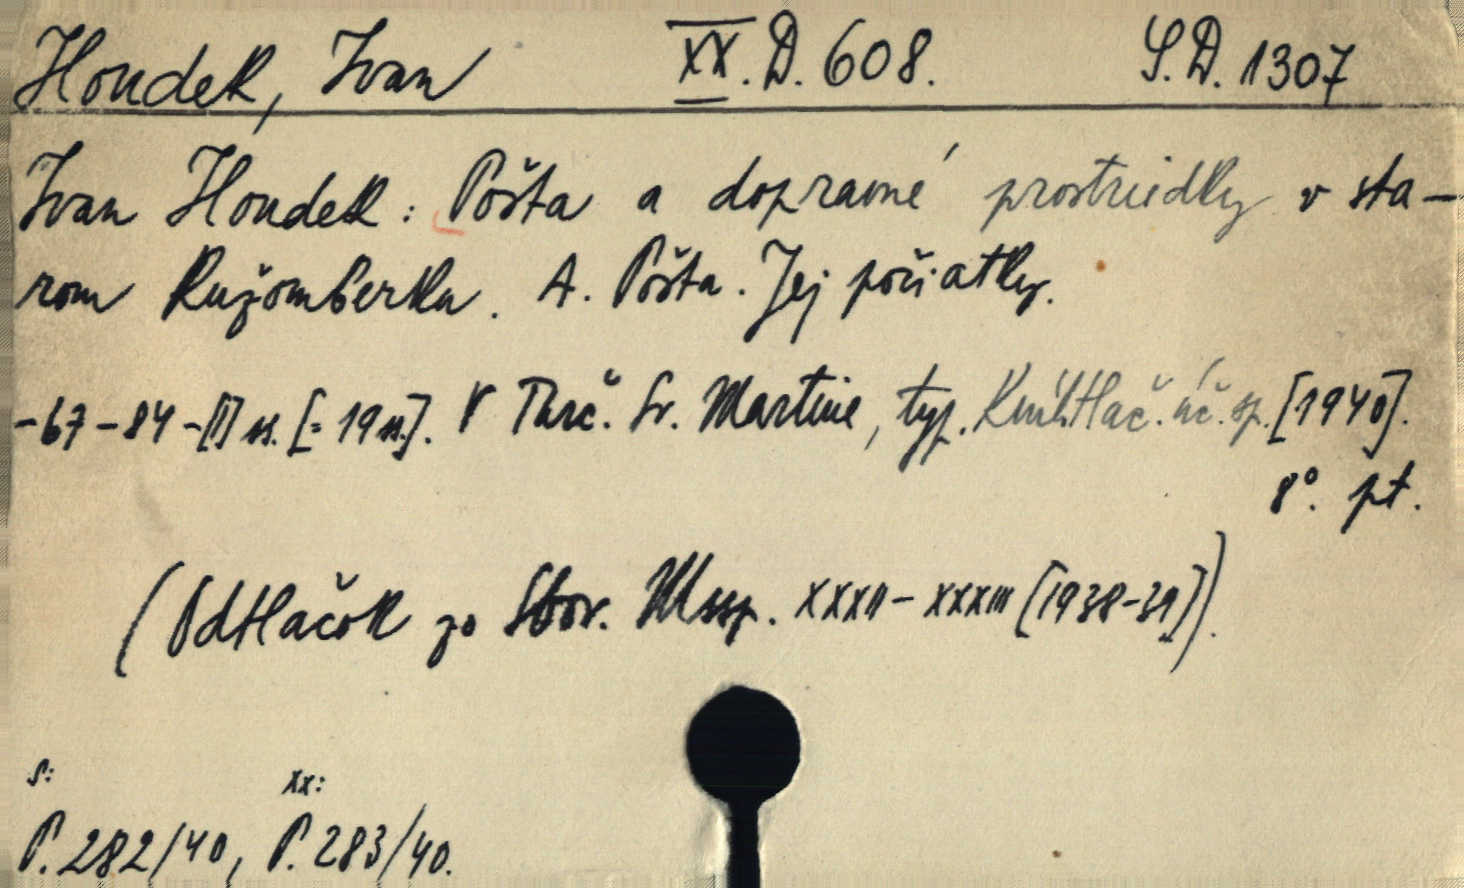 Houdek, Ivan XX. D. 608. S. D. 1307
Ivan Houdek: Pošta a dopravné prostriedky v sta-
rom Ružomberku. A. Pošta. Jej počiatky.
-67-84-[1] ss. [= 19 s.]. V Turč. Sv. Martine, typ. Kníhtlač. úč. sp. [1940].
8°. pt.
(Odtlačok zo Sbor. Mssp. XXXII-XXXIII [1938-39]).
S: XX:
P. 282/40, P. 283/40.